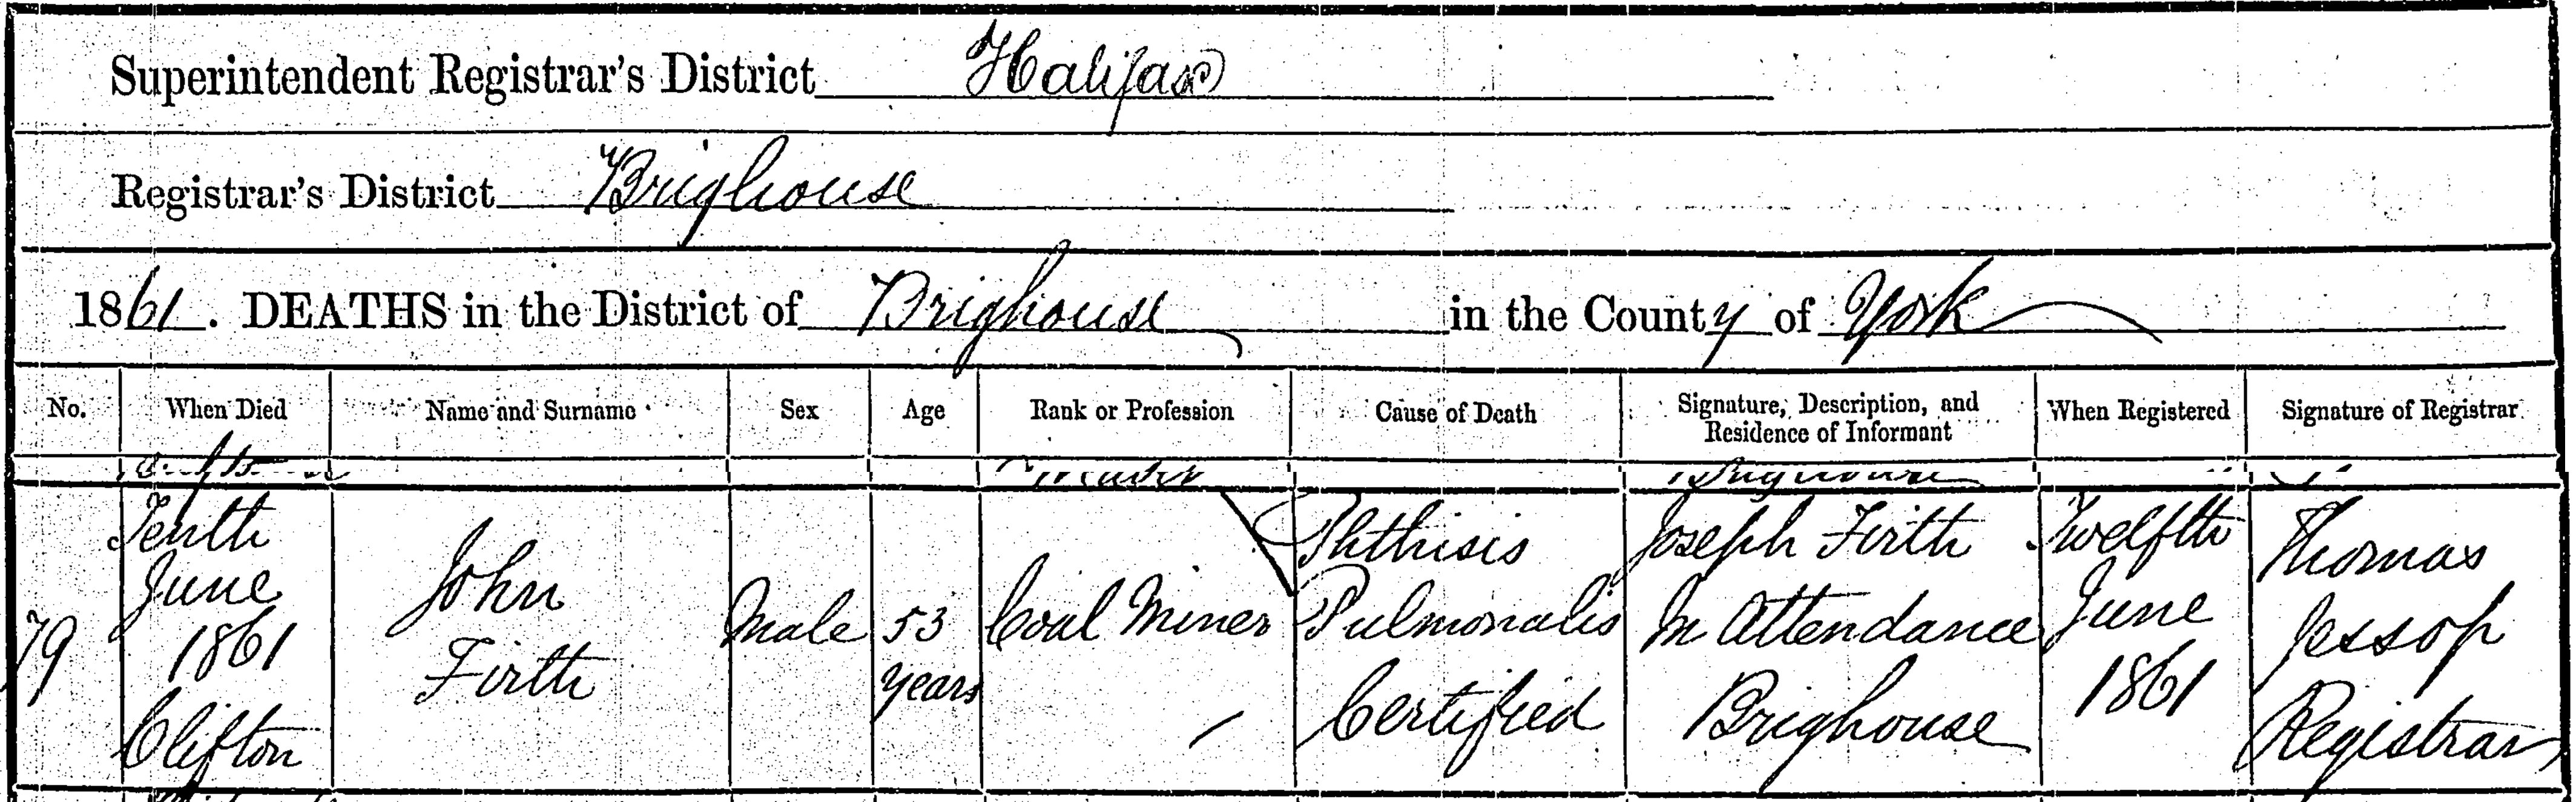 Superintendent Registrar's District Halifax
Registrar's District Brighouse
1861. DEATHS in the District of Brighouse in the County of York
No.
When Died
Name and Surname
Sex
Age
Rank or Profession
Cause of Death
Signature, Description, and
Residence of Informant
When Registered
Signature of Registrar
Brighouse
79
Tenth
June
1861
Clifton
John
Firth
Male
53
years
Coal Miner
Phthisis
Pulmonalis
Certified
Joseph Firth
In Attendance
Brighouse
Twelfth
June
1861
Thomas
Jessop
Registrar